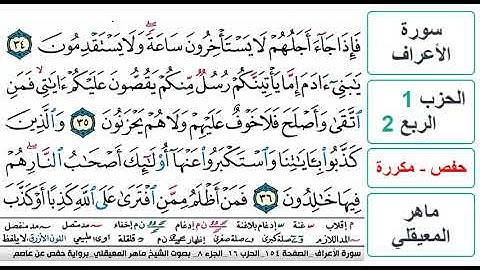 سورة
الأعراف
الحزب 1
الربع 2
حفص - مكررة
ماهر
المعيقلي
فَإِذَا جَآءَ أَجَلُهُمْ لَا يَسْتَأْخِرُونَ سَاعَةً وَلَا يَسْتَقْدِمُونَ ٣٤
يَٰبَنِىٓ ءَادَمَ إِمَّا يَأْتِيَنَّكُمْ رُسُلٌ مِّنكُمْ يَقُصُّونَ عَلَيْكُمْ ءَايَٰتِى فَمَنِ
ٱتَّقَىٰ وَأَصْلَحَ فَلَا خَوْفٌ عَلَيْهِمْ وَلَا هُمْ يَحْزَنُونَ ٣٥ وَٱلَّذِينَ
كَذَّبُوا۟ بِـَٔايَٰتِنَا وَٱسْتَكْبَرُوا۟ عَنْهَآ أُو۟لَٰٓئِكَ أَصْحَٰبُ ٱلنَّارِ هُمْ
فِيهَا خَٰلِدُونَ ٣٦ فَمَنْ أَظْلَمُ مِمَّنِ ٱفْتَرَىٰ عَلَى ٱللَّهِ كَذِبًا أَوْ كَذَّبَ
سورة الأعراف - الصفحة ١٥٤ - الحزب ١٦ - الجزء ٨ - بصوت الشيخ ماهر المعيقلي - برواية حفص عن عاصم